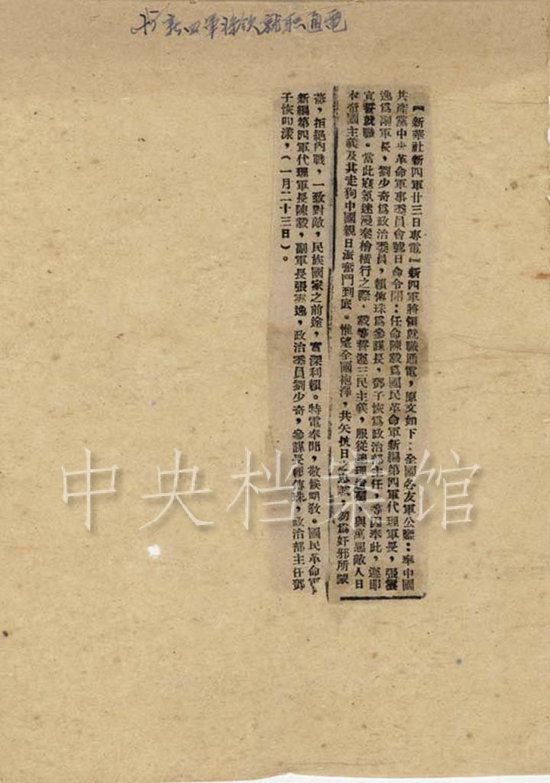 新四軍將領就職通電
『新華社新四軍廿三日專電』新四軍將領就職通電，原文如下：全國各友軍公鑒：奉中國
共產黨中央革命軍事委員會號日命令開：任命陳毅為國民革命軍新編第四軍代理軍長，張雲
逸為副軍長，劉少奇為政治委員，賴傳珠為參謀長，鄧子恢為政治部主任，等因奉此，遵即
宣誓就職。當此寇氛迷漫秦檜橫行之際，毅等誓遵三民主義，服從總理遺囑，與萬惡敵人日
本帝國主義及其走狗中國親日派奮鬥到底。惟望全國袍澤，共矢抗日之志，勿為奸邪所蒙
蔽，拒絕內戰，一致對敵，民族國家之前途，實深利賴。特電奉聞，敬候明教。國民革命軍
新編第四軍代理軍長陳毅，副軍長張雲逸，政治委員劉少奇，參謀長賴傳珠，政治部主任鄧
子恢叩漾，（一月二十三日）。
中央档案馆